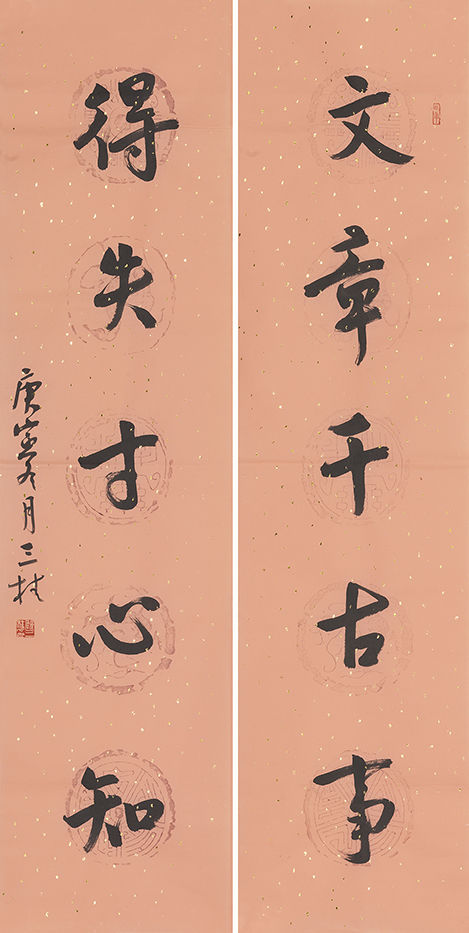 文章千古事
得失寸心知
庚寅冬月三柱